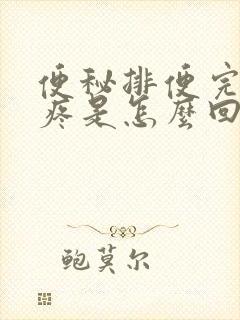 便秘排便完
疼是怎麼回
鲍莫尔